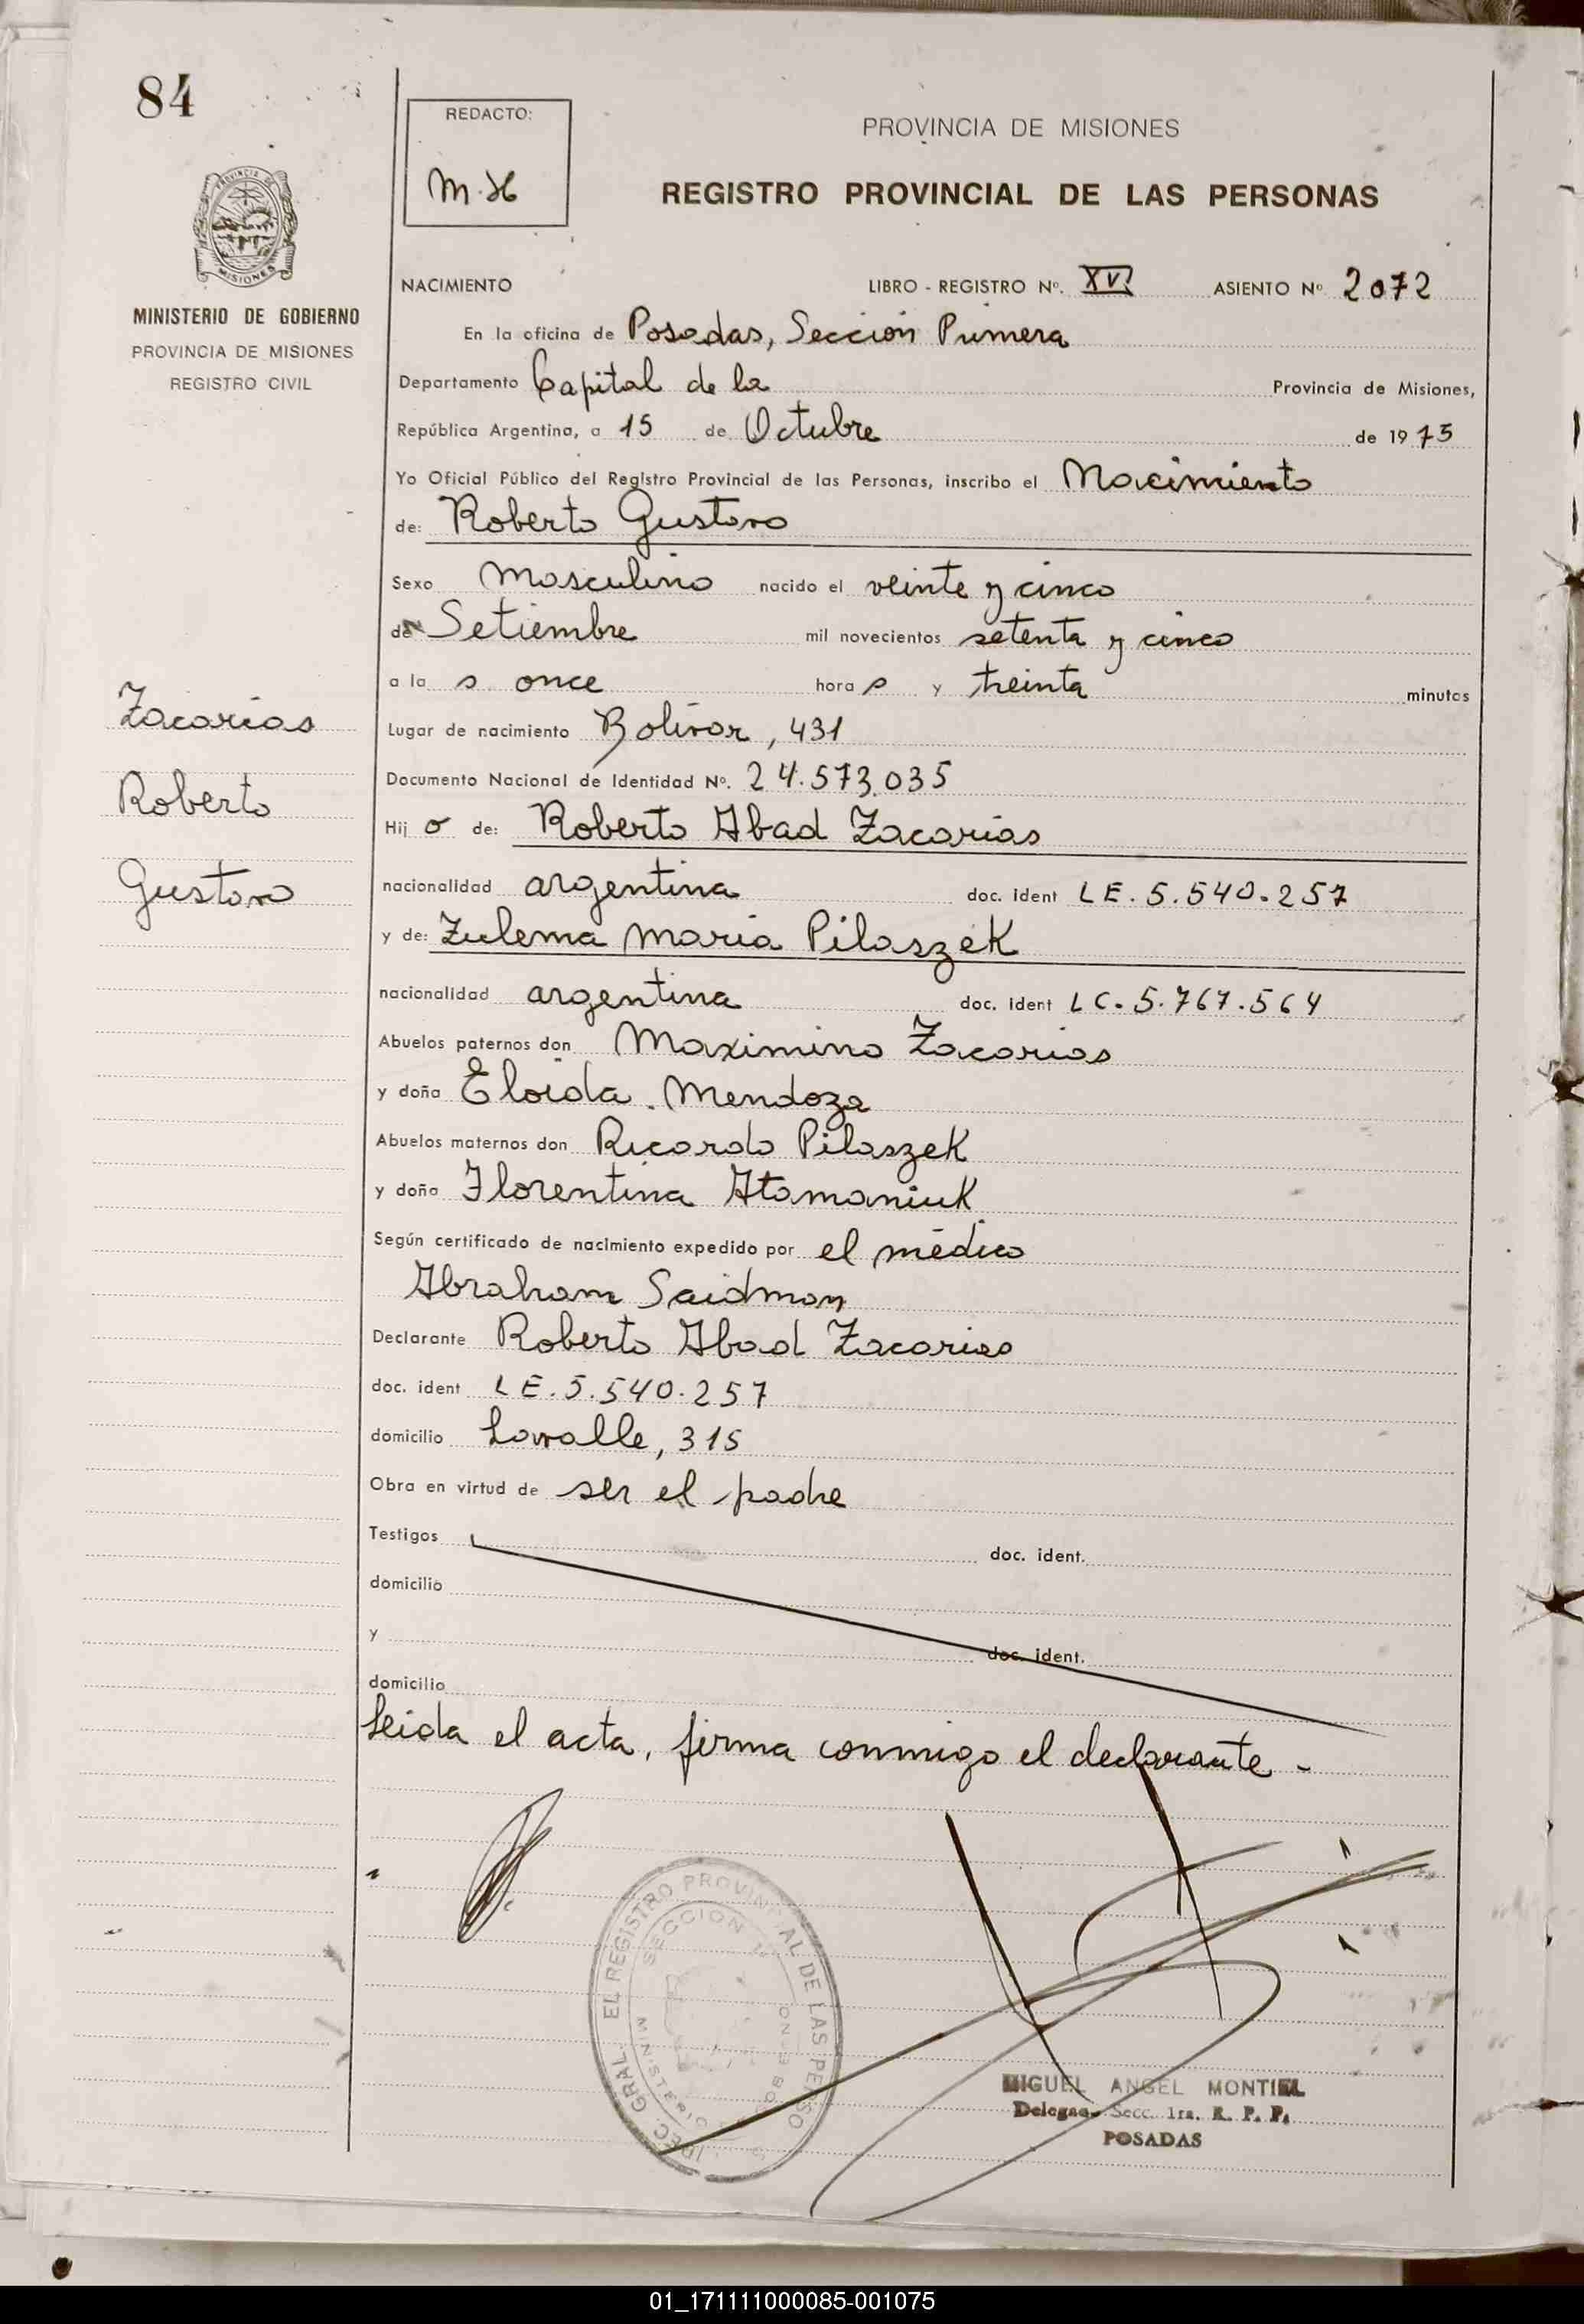 84
REDACTO:
M.H
PROVINCIA DE MISIONES
REGISTRO PROVINCIAL DE LAS PERSONAS
MISIONES
MINISTERIO DE GOBIERNO
PROVINCIA DE MISIONES
REGISTRO CIVIL
NACIMIENTO LIBRO - REGISTRO Nº. XVI ASIENTO Nº 2072
En la oficina de Posadas, Sección Primera
Departamento Capital de la Provincia de Misiones,
República Argentina, a 15 de Octubre de 1975
Yo Oficial Público del Registro Provincial de las Personas, inscribo el Nacimiento
de: Roberto Gustavo
Sexo Masculino nacido el veinte y cinco
de Setiembre mil novecientos setenta y cinco
a la s once hora s y treinta minutos
Zacarias
Roberto
Gustavo
Lugar de nacimiento Bolívar, 431
Documento Nacional de Identidad Nº. 24.573.035
Hij o de: Roberto Abad Zacarias
nacionalidad argentina doc. ident LE. 5.540.257
y de: Zulema Maria Pilaszek
nacionalidad argentina doc. ident LC. 5.767.564
Abuelos paternos don Maximino Zacarias
y doña Eloida Mendoza
Abuelos maternos don Ricardo Pilaszek
y doña Florentina Atamaniuk
Según certificado de nacimiento expedido por el médico
Abraham Saidman
Declarante Roberto Abad Zacarias
doc. ident LE. 5.540.257
domicilio Lavalle, 315
Obra en virtud de ser el padre
Testigos doc. ident.
domicilio
y doc. ident.
domicilio
Leida el acta, firma conmigo el declarante -
MIGUEL ANGEL MONTIEL
Delegado Secc. 1ra. R. P. P.
POSADAS
01_171111000085-001075